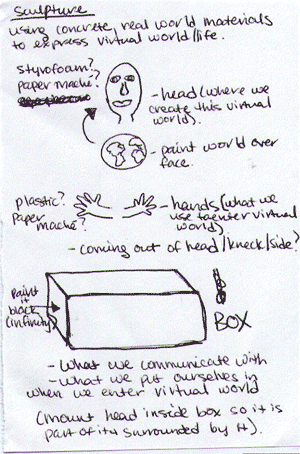 Sculpture
using concrete, real world materials
to express virtual world/life.
styrofoam?
paper mache?
-head (where we
create this virtual
world).
- paint world over
face.
plastic?
paper
mache?
- hands (what we
use to enter virtual
world)
- coming out of head/kneck/side?
paint
it
black
(infinity)
BOX
- What we communicate with
- What we put ourselves in
when we enter virtual world
(Mount head inside box so it is
part of it + surrounded by it).